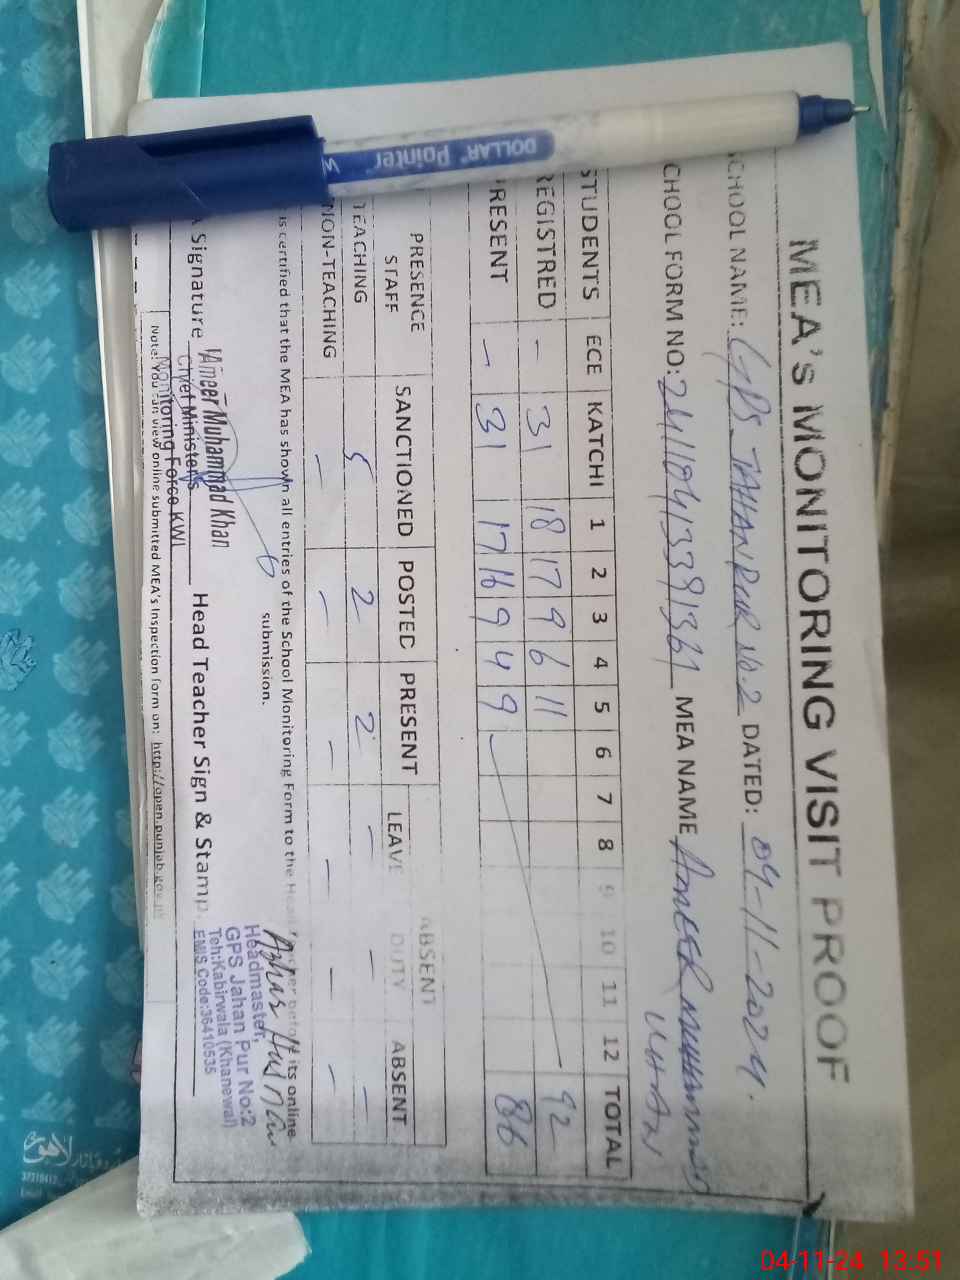 MEA's MONITORING VISIT PROOF
SCHOOL NAME: GPS JAHANPUR No.2 DATED: 04-11-2024.
CHOOL FORM NO: MEA NAME AMEER MUHAMMAD
KHAN
STUDENTS ECE KATCHI 1 2 3 4 5 6 7 8 9 10 11 12 TOTAL
REGISTRED - 31 18 17 9 6 11 92
RESENT - 31 17 16 9 4 9 86
PRESENCE STAFF SANCTIONED POSTED PRESENT ABSENT
LEAVE DUTY ABSENT
TEACHING 5 2 2 - - -
NON-TEACHING - - - - - -
is certified that the MEA has shown all entries of the School Monitoring Form to the Head before its online
submission.
Signature Head Teacher Sign & Stamp.
Ameer Muhammad Khan
Chief Minister's
Monitoring Force KWL
Headmaster,
GPS Jahan Pur No:2
Teh:Kabirwala (Khanewal)
EMIS Code:36410535
Note: You can view online submitted MEA's Inspection form on: http://open.punjab.gov.pk
DOLLAR Pointer
لاهور
04-11-24 13:51